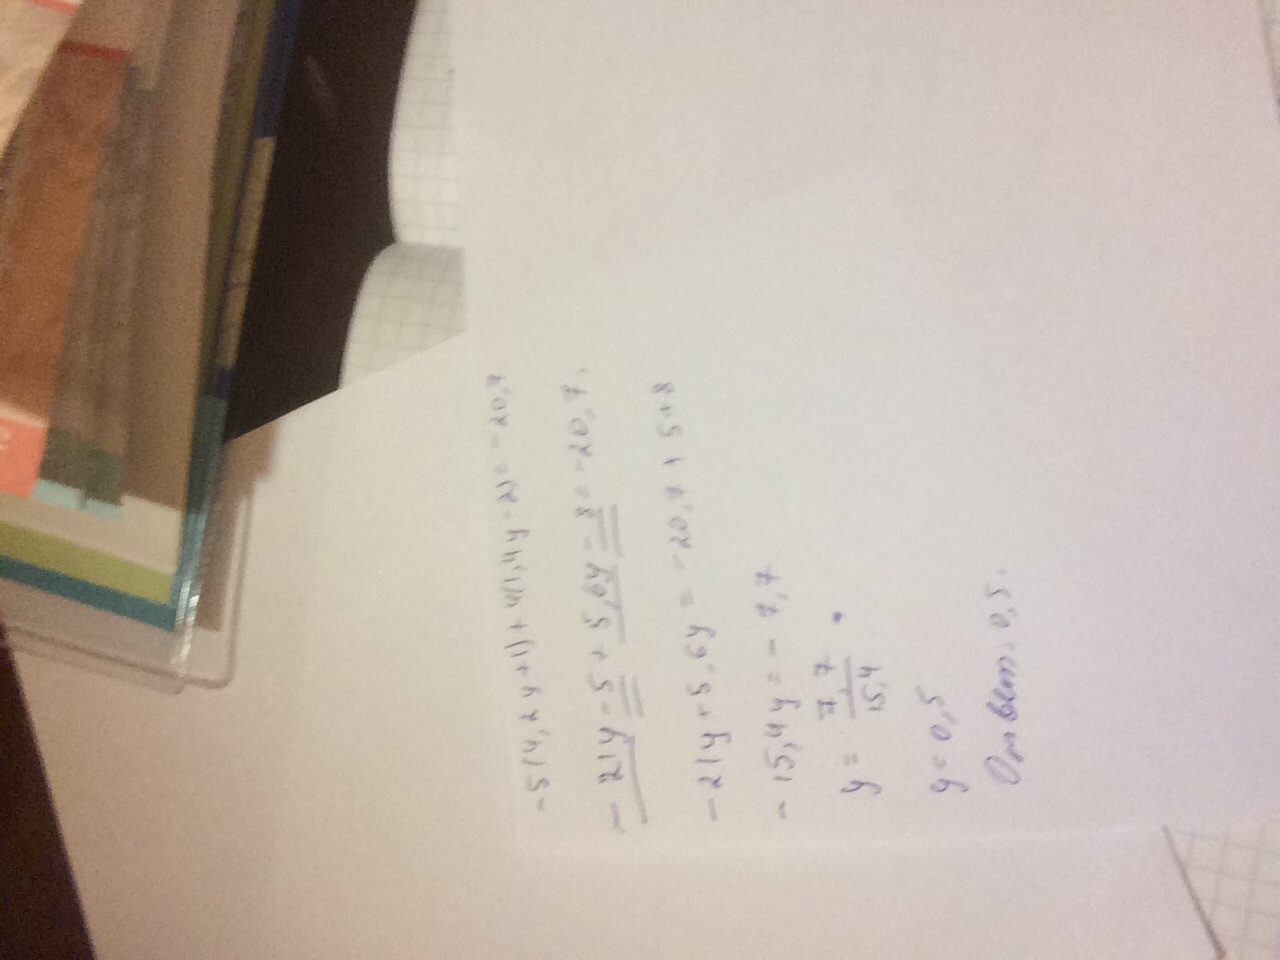 -5(4,2y+1)+4(1,4y-2)=-20,7
-21y-5+5,6y-8=-20,7.
-21y+5,6y=-20,7+5+8
-15,4y=-7,7
y=7,7/15,4
y=0,5
Ответ: 0,5.